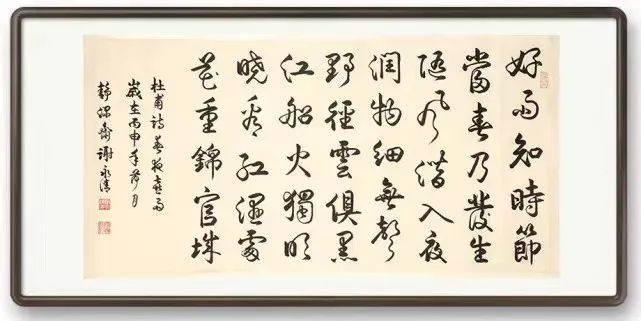 好雨知時節
當春乃發生
隨風潛入夜
潤物細無聲
野徑雲俱黑
江船火獨明
曉看紅濕處
花重錦官城
杜甫詩春夜喜雨
歲在丙申年月
齋謝永清